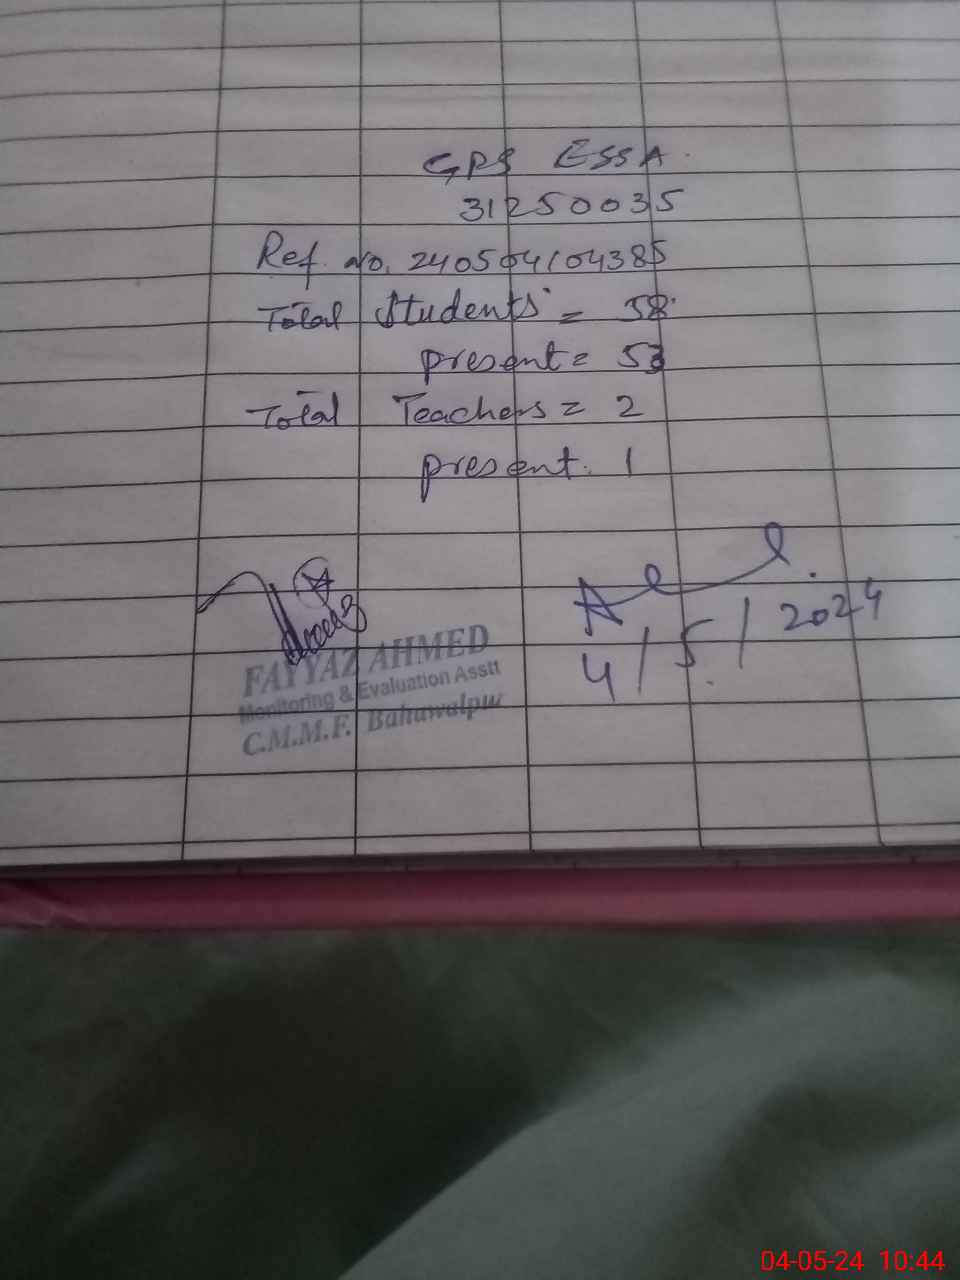 GPS ESSA.
31250035
Ref. No. 240504104385
Total Students = 58
present = 53
Total Teachers = 2
present. 1
FAYYAZ AHMED
Monitoring & Evaluation Asstt
C.M.M.F. Bahawalpur
4/5/2024
04-05-24 10:44